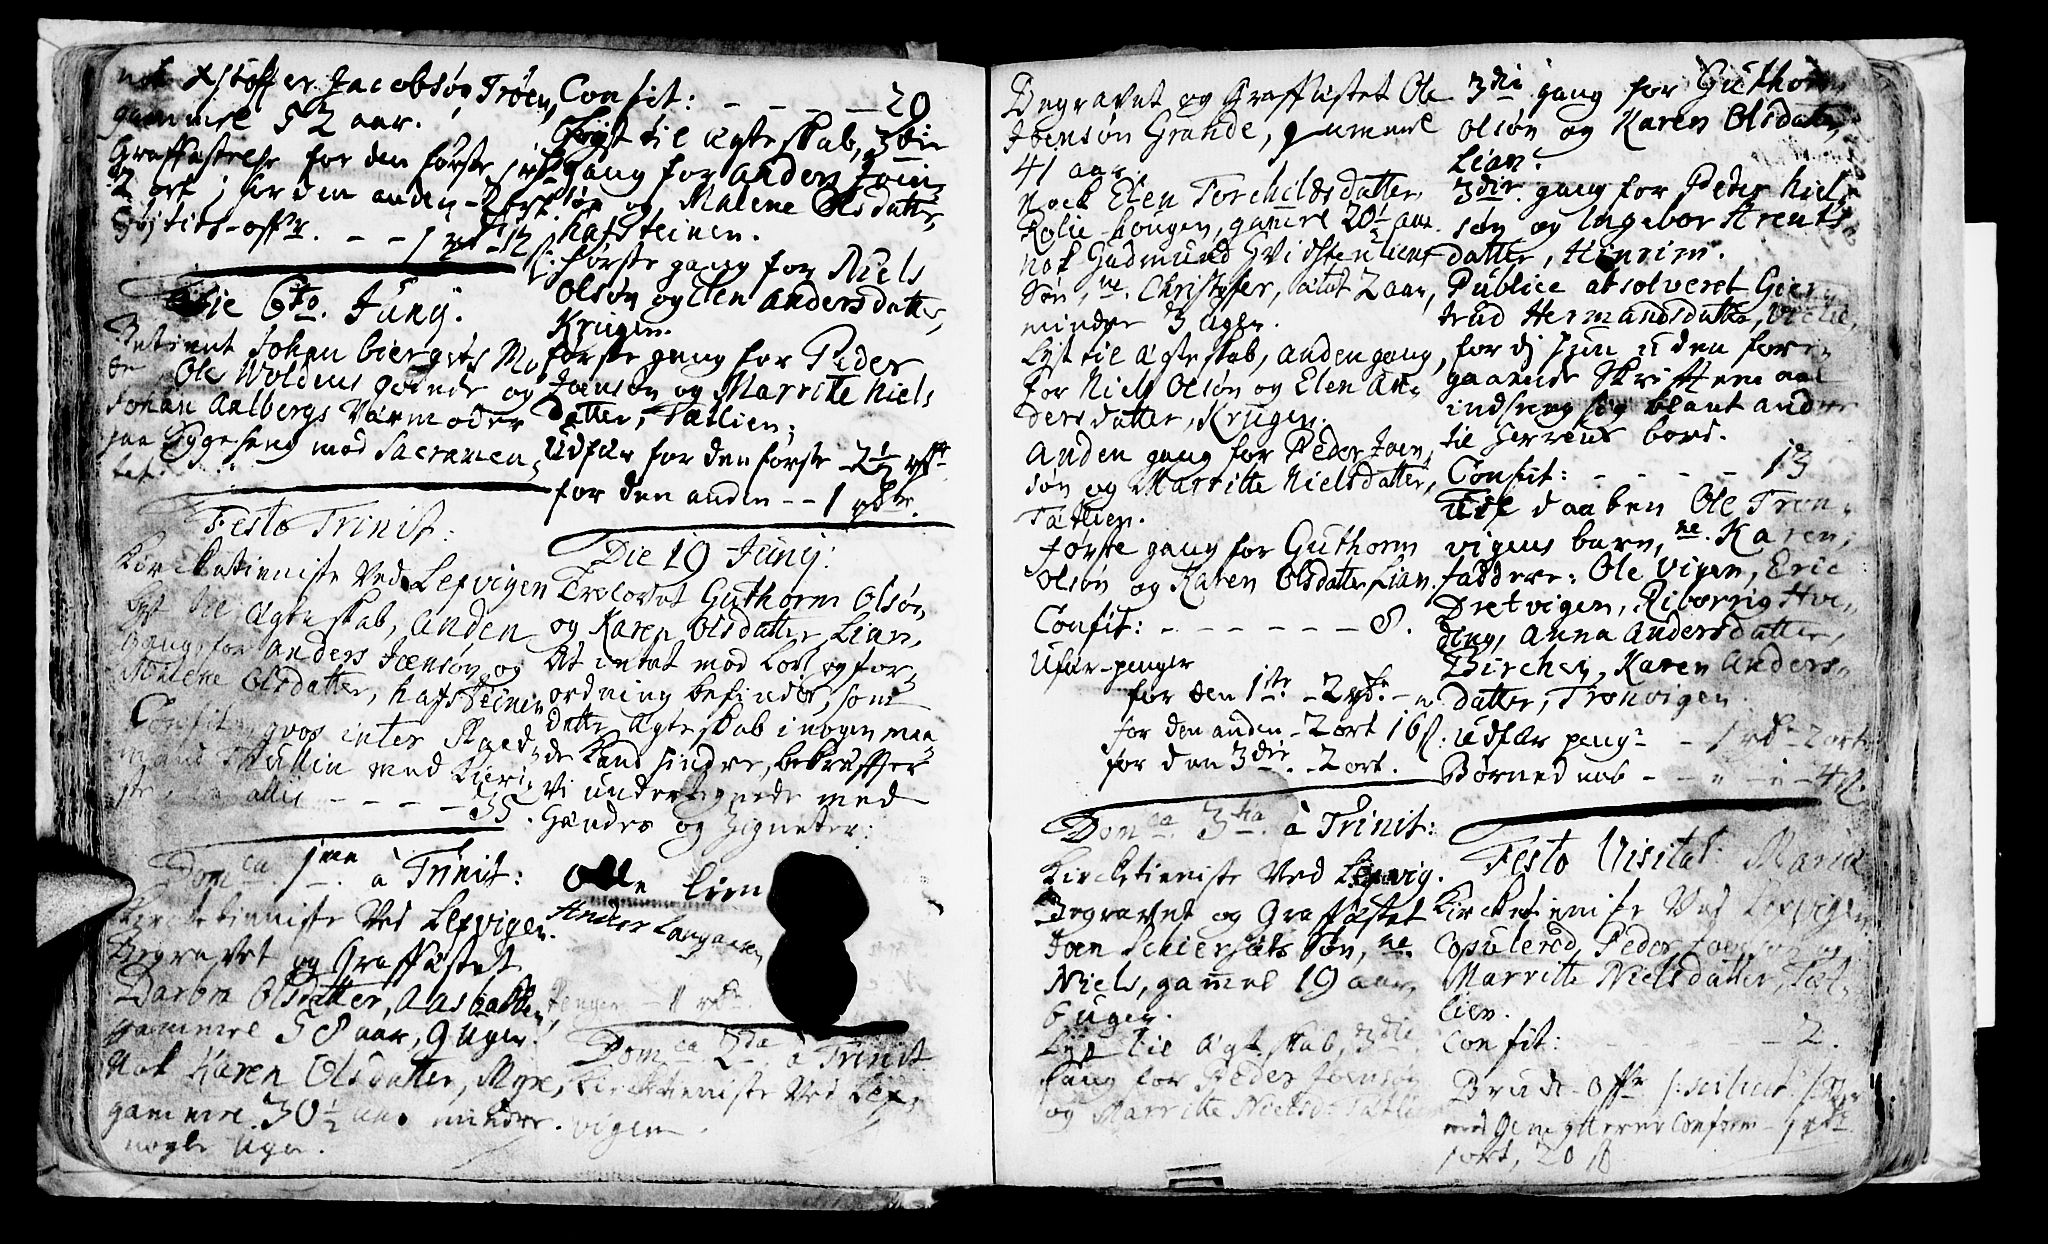 nok Xstoffer Jacobsøn, Trøen,
gammel 52 aar.
Graffæstelse for den første
2 ort; for den anden - 2 ort.
Høitids-offr. - - 1 rdr 12
Die 6to. Junij.
Betient Johan Giergses Mo,
Ole Woldens godmode og
Johan Aalbergs Værmoder
paa Sygeseng med Sacramen,
tet.
Festo Trinit:
Kirketieniste Ved Lexvigen
Lyst til Ægteskab, anden
gang for anders Joensøn og
Malene Olsdatter, hafsteinen
Confit. inter
55.
Domca. 1ma à Trinit:
Kirketienniste Ved Lexvigen.
Begravet og Graffæstet
Daron Olsdatter, Aasbakken,
gammel 58 aar, 9 uger.
Nok Karen Olsdatter, Myre,
gammel 30½ aar mindre
nogle Uger.
Confit: - - - - 29
Lyst til ægteskab, 3die
gang for anders Joen,
søn og Malene Olsdatter,
hafsteinen.
første gang for Niels
Olsøn og Elen Andersdatter,
Krugen.
første gang for Peder
Joensøn og Marritte Niels
datter, Tætlien;
Udfær for den første - 2½ rdr.
for den anden - - 1 rdr.
Die 19 Junij:
Trolovet Guthorm Olsøn
og Karen Olsdatter, Lian,
At intet mod Lov og for,
ordning befindes, som
dette Ægteskab i nogen maa,
de kand hindre, bekræfter
vi undertegnede med
Hænder og Zigneter:
Olle lien
Ander Langaaen
Penger - 1 rdr.
Domca. 2da à Trinit.
Kircketieniste Ved Lex,
vigen.
Begravet og Graffæstet Ole
Joensøn Grande, gammel
41 aar.
Nock Elen Torchildsdatter
Rolie-hougen, gammel 20½ aar.
Nok Gudmund Hvidstenliens
Søn, ne. Christopher, ætat 2 aar,
mindre 3 Uger.
Lyst til ægteskab, anden gang,
for Niels Olsøn og Elen An,
dersdatter, Krugen.
Anden gang for Peder Joen,
søn og Marritte Nielsdatter,
Tætlien.
Første gang for Guthorm
Olsøn og Karen Olsdatter Lian.
Confit: - - - - - - 8.
Ufær-penger
for den 1ste - 2 rdr. -
for den anden - 2 ort 16 s.
for den 3die. - 2 ort.
Domca. 3tia. à Trinit:
Kircketieniste Ved Lexvig.
Begravet og Graffæstet
Joen Schiersæts Søn, ne.
Niels, gammel 19 aar,
6 uger.
Lyst til Ægteskab, 3die
gang for Peder Joensøn
og Marritte Nielsd: Tætlien
3die gang for Guthorm
Olsøn og Karen Olsdatter,
Lian.
3die. gang for Peder Niel,
søn og Ingebor Arents
datter, Hinrim.
Publice absolveret Gier,
trud Hermandsdatter,
fordj hun uden fore,
gaaende Skriftemaal
indsneg sig blant andre
til Herrens bord.
Confit: - - - - 13
Udi daaben Ole Tron,
vigens barn, ne. Karen;
faddere: Ole Vigen, Eric
Dretvigen, Riborrig Hve,
ding, Anna Andersdatter,
Birchen, Karen Anders,
datter, Tronvigen.
Udfær pengr - 1 rdr 2 ort
Børnedaab - - - 4 s.
Festo Visitat: Mariæ
Kircketieniste Ved Lexvigen
Copulered Peder Joensøn og
Marritte Nielsdatter, Tæt,
lien.
Confit: - 2.
Brude-offr
1 ort, 20 s